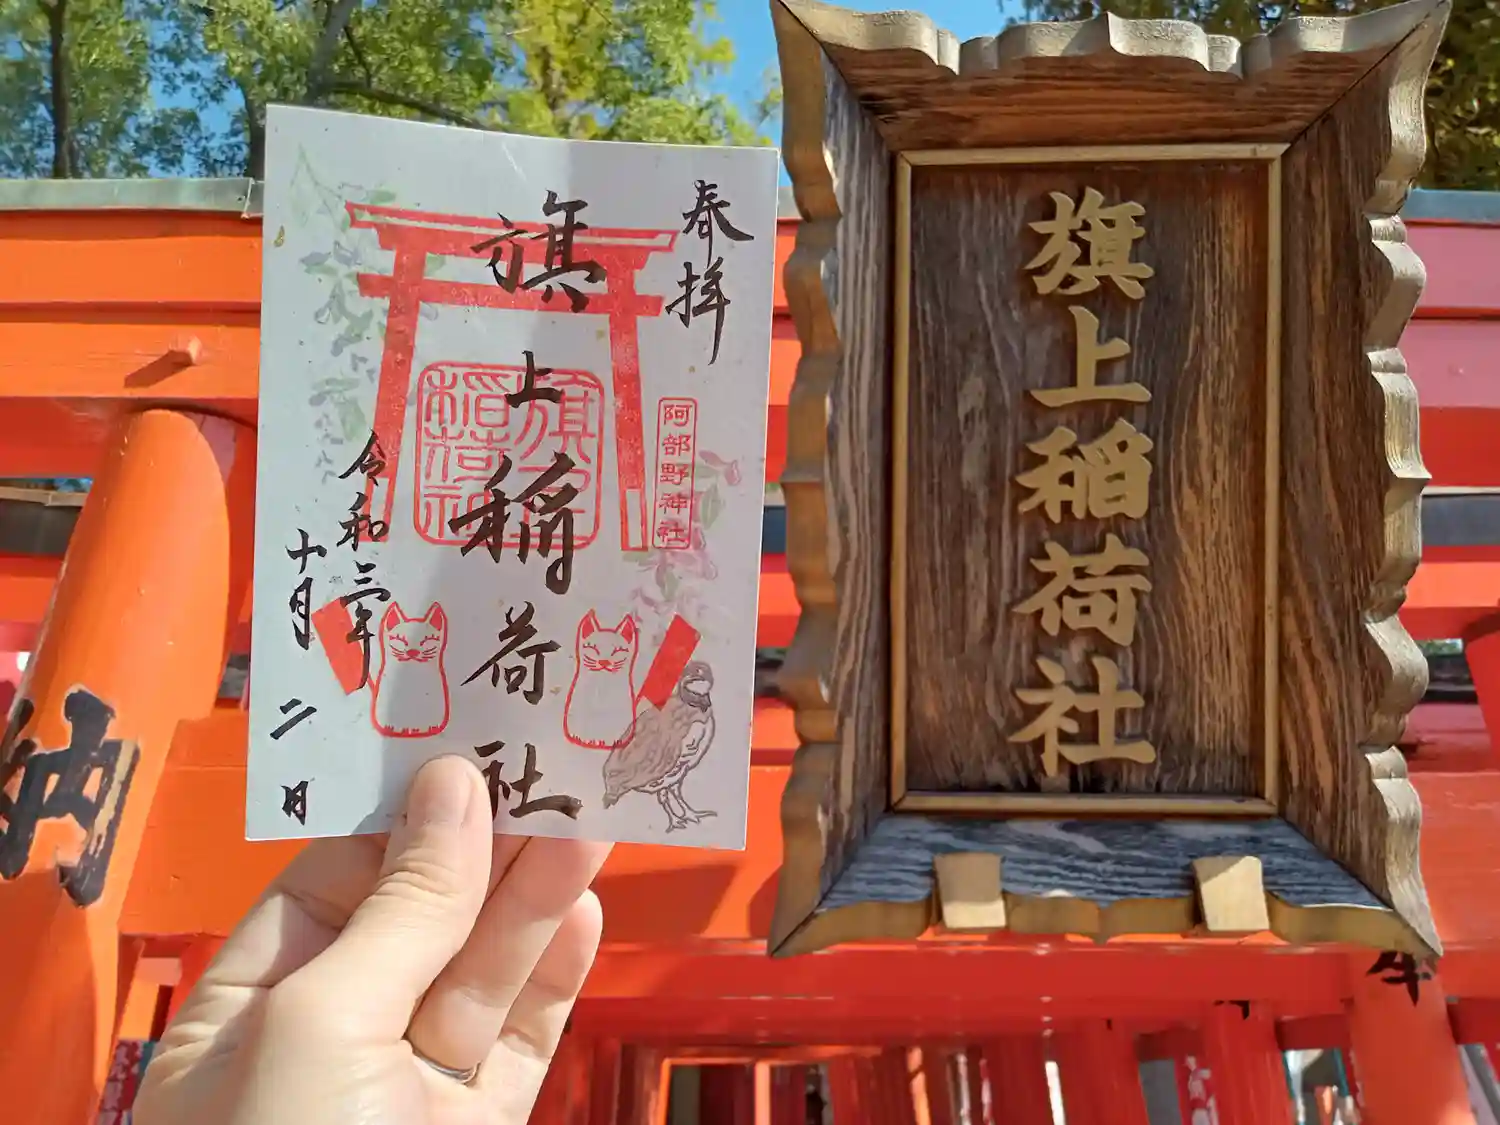 奉拝
旗上稲荷社
旗上稲荷神
阿部野神社
令和三年
十月二日
旗上稲荷社
納